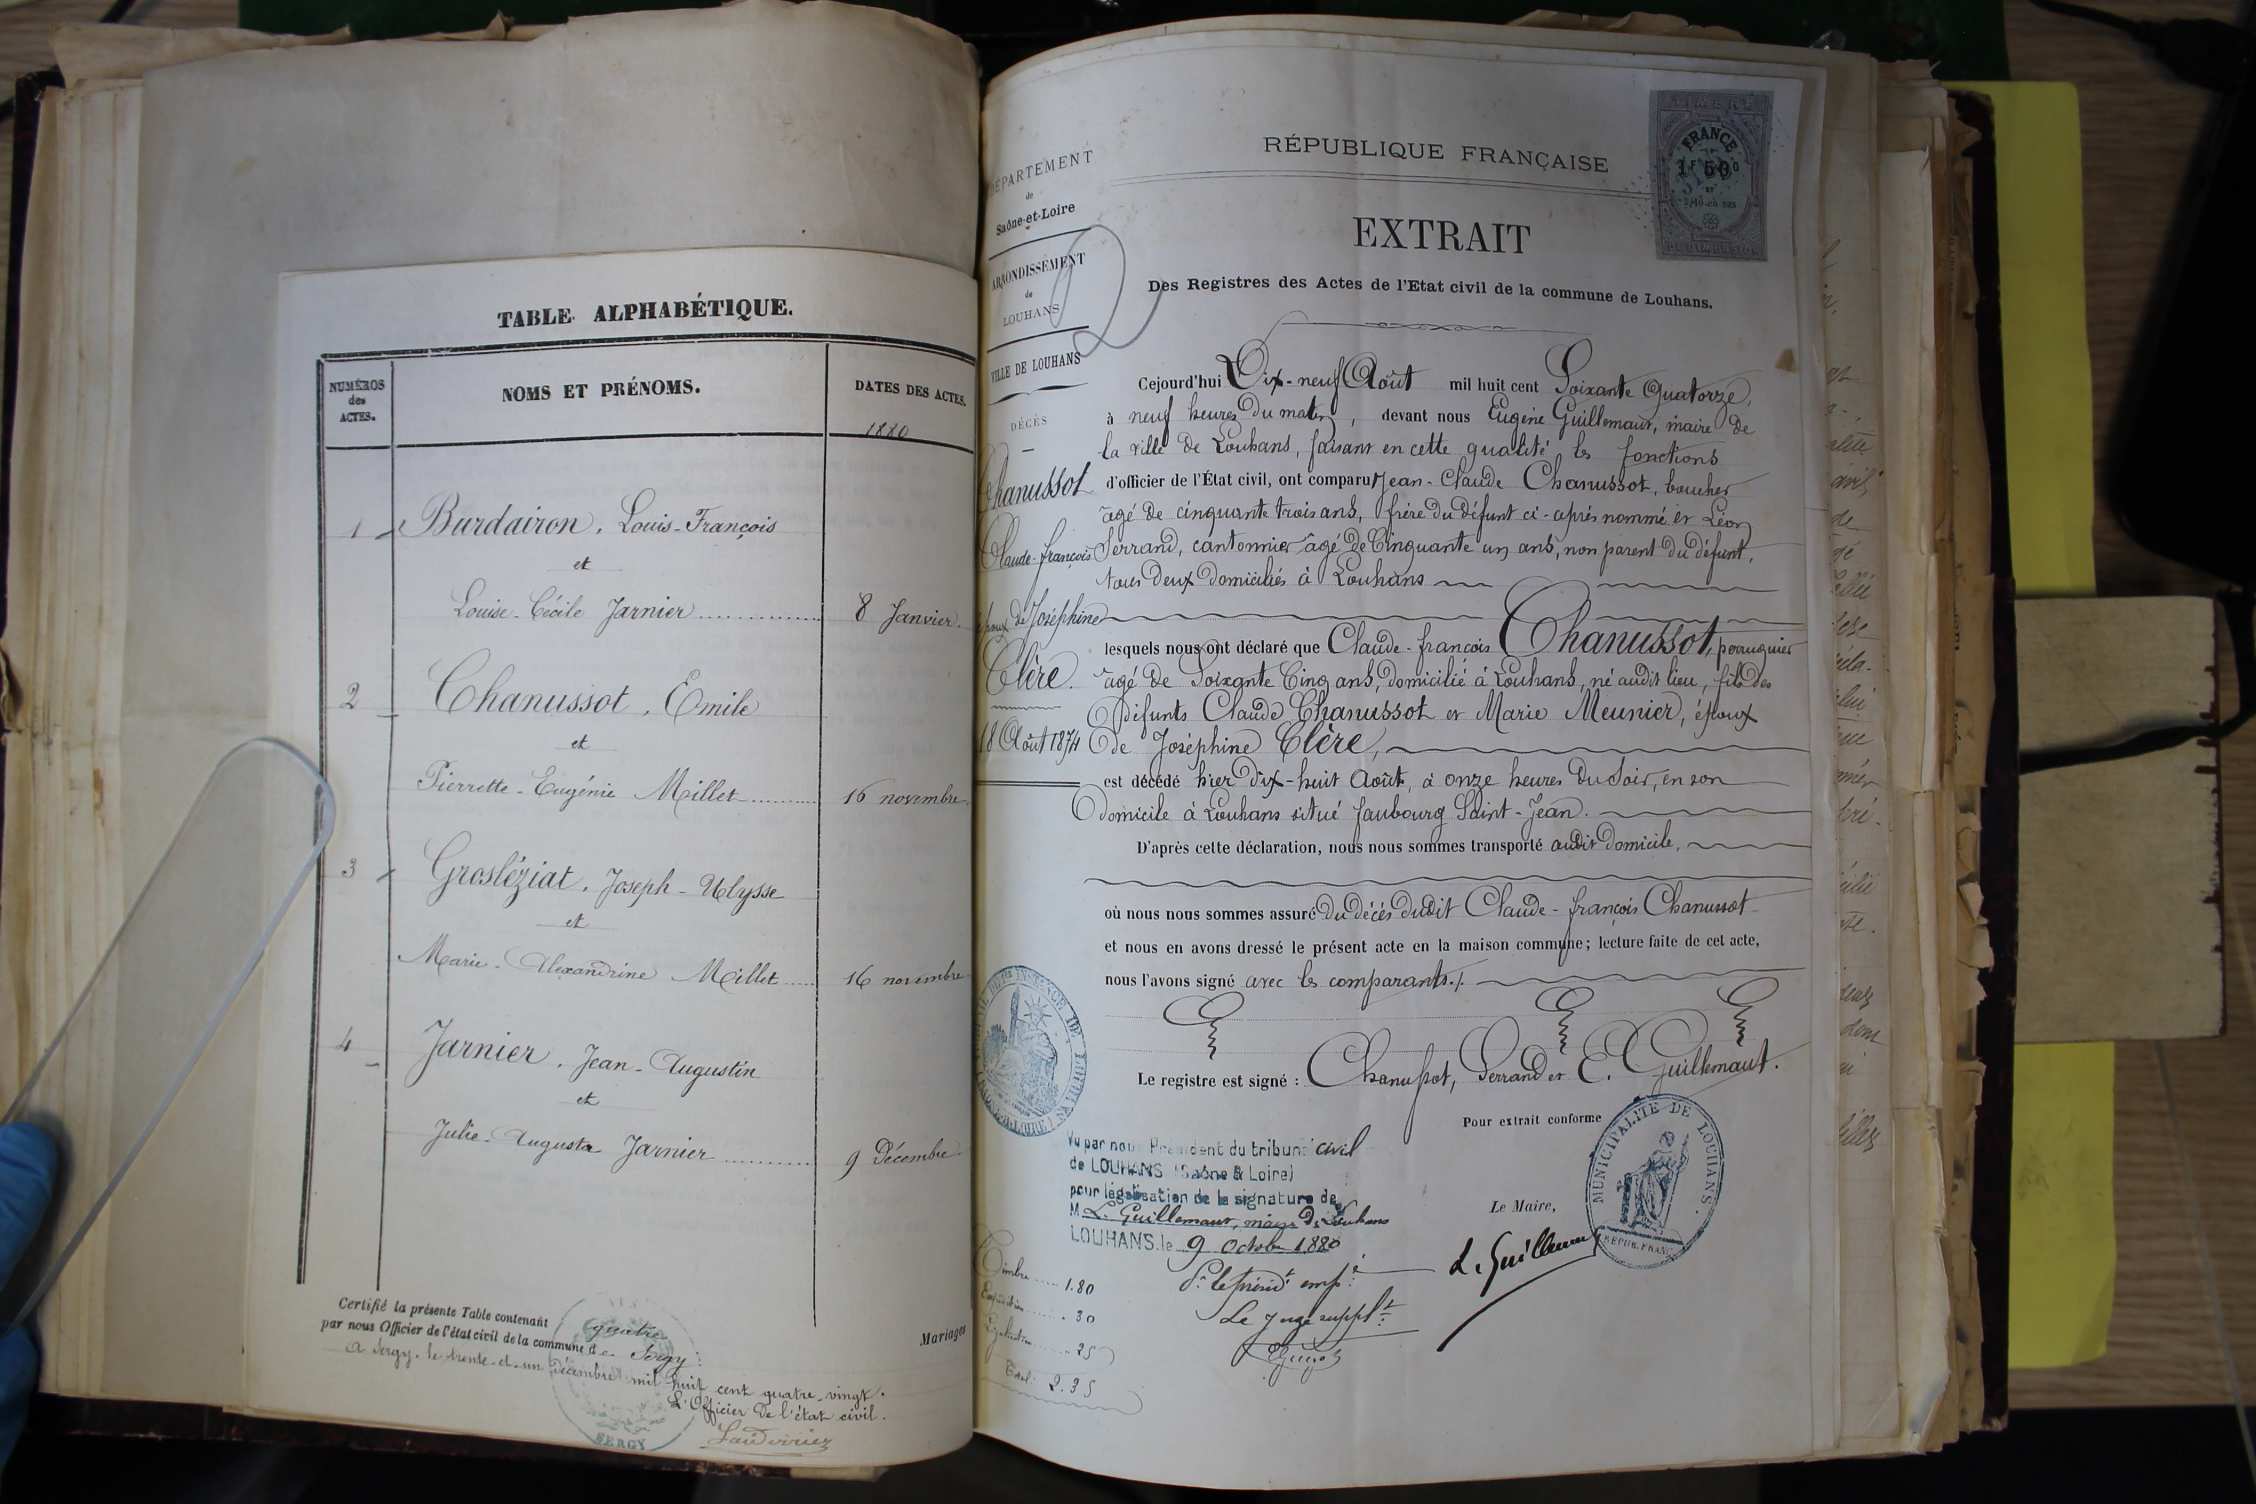 TABLE ALPHABÉTIQUE.
NUMÉROS
des
ACTES.
NOMS ET PRÉNOMS.
DATES DES ACTES.
1880
1 Burdairon, Louis-François
et
Louise-Cécile Jarnier .............. 8 Janvier.
2 Chanussot, Emile
et
Pierrette-Eugénie Millet .......... 16 novembre.
3 Grosléziat, Joseph-Ulysse
et
Marie-Alexandrine Millet ..... 16 novembre
4 Jarnier, Jean-Augustin
et
Julie-Augusta Jarnier ............ 9 Décembre.
Certifié la présente Table contenant quatre Mariages
par nous Officier de l'état civil de la commune de Sergy.
a Sergy, le trente-et-un Décembre mil huit cent quatre-vingt.
L'Officier De l'état civil.
SERGY
DÉPARTEMENT
de
Saône-et-Loire
ARRONDISSEMENT
de
LOUHANS
VILLE DE LOUHANS
DÉCÈS
Chanussot
Claude-françois
époux de Joséphine
Clère.
18 Août 1874
2
RÉPUBLIQUE FRANÇAISE
FRANCE
1 F 50
EXTRAIT
Des Registres des Actes de l'Etat civil de la commune de Louhans.
Cejourd'hui Dix-neuf Août mil huit cent Soixante Quatorze,
à neuf heures Du matin, devant nous Eugène Guillemaut, maire De
la ville De Louhans, faisant en cette qualité les fonctions
d'officier de l'État civil, ont comparu Jean-Claude Chanussot, boucher
âgé De cinquante trois ans, frère du défunt ci-après nommé et Léon
Serrand, cantonnier âgé De Cinquante un ans, non parent du défunt,
tous Deux domiciliés à Louhans
lesquels nous ont déclaré que Claude-françois Chanussot, perruquier
âgé De Soixante Cinq ans, domicilié à Louhans, né audit lieu, fils des
Défunts Claude Chanussot et Marie Meunier, époux
de Joséphine Clère,
est décédé hier Dix-huit Août, à onze heures Du Soir, en son
Domicile à Louhans situé faubourg Saint-Jean.
D'après cette déclaration, nous nous sommes transporté audit Domicile,
où nous nous sommes assuré Du Décès dudit Claude-françois Chanussot
et nous en avons dressé le présent acte en la maison commune; lecture faite de cet acte,
nous l'avons signé avec les comparants./.
Le registre est signé : Chanussot, Serrand et E. Guillemaut.
Pour extrait conforme
MUNICIPALITÉ DE LOUHANS.
RÉPUB. FRANC
Le Maire,
L. Guillemaut
Vu par nous Président du tribunal civil
de LOUHANS (Saône & Loire)
pour légalisation de la signature de
M. L. Guillemaut, maire De Louhans
LOUHANS, le 9 Octobre 1880
Pr le Présidt empé
Le Juge supplt
Timbre ..... 1.80
Expédition ....... . 30
Législation ....... 25
Total. 2.35